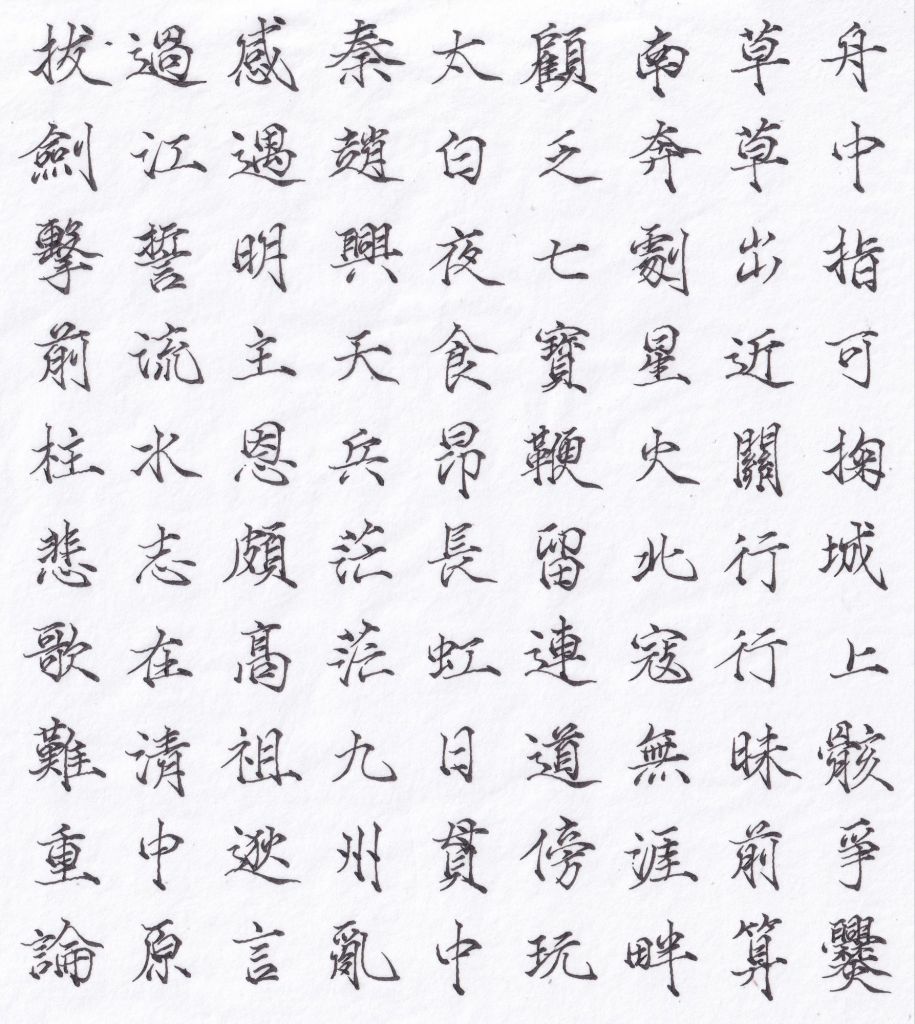 舟中指可掬城上骸爭爨
草草出近關行行昧前算
南奔劇星火北寇無涯畔
顧乏七寶鞭留連道傍玩
太白夜食昴長虹日貫中
秦趙興天兵茫茫九州亂
感遇明主恩頗髙祖逖言
過江誓流水志在清中原
拔劍擊前柱悲歌難重論